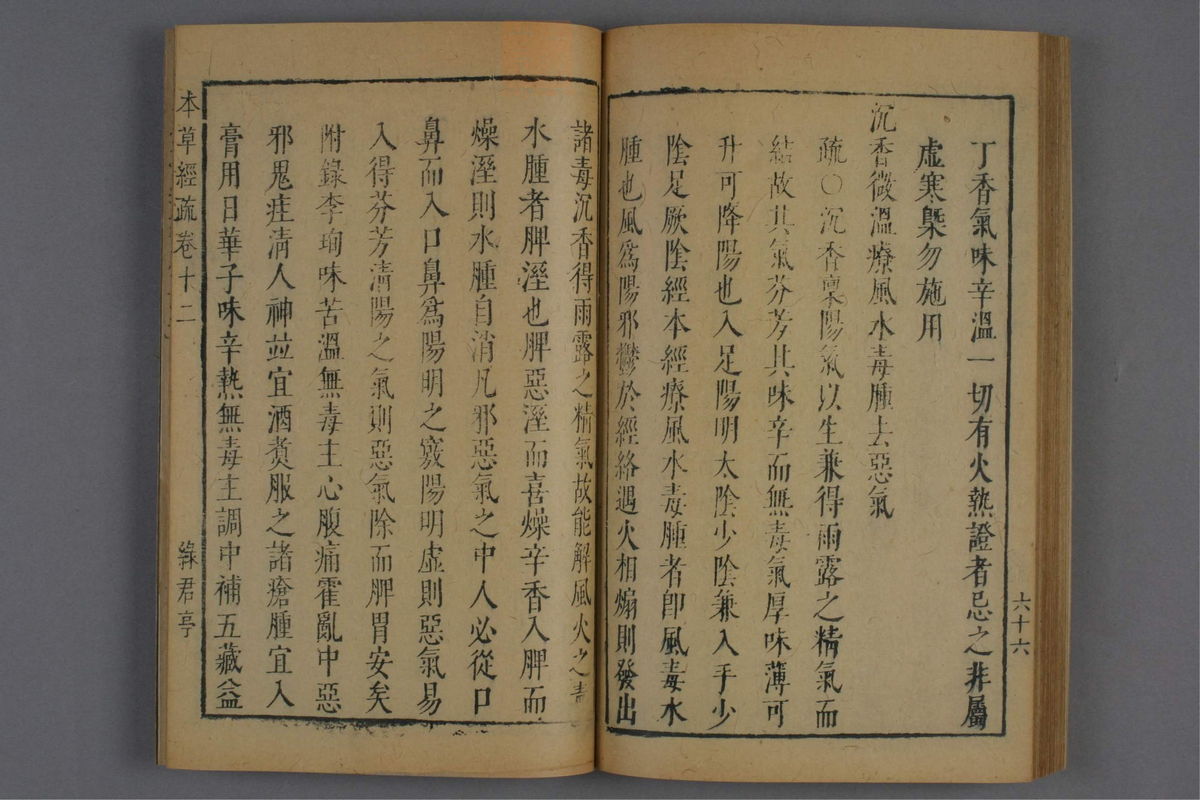 六十六
丁香氣味辛溫一切有火熱證者忌之非屬
虛寒槩勿施用
沉香微溫療風水毒腫去惡氣
疏○沉香稟陽氣以生兼得雨露之精氣而
結故其氣芬芳其味辛而無毒氣厚味薄可
升可降陽也入足陽明太陰少陰兼入手少
陰足厥陰經本經療風水毒腫者卽風毒水
腫也風爲陽邪鬱於經絡遇火相煽則發出
諸毒沉香得雨露之精氣故能解風火之毒
水腫者脾溼也脾惡溼而喜燥辛香入脾而
燥溼則水腫自消凡邪惡氣之中人必從口
鼻而入口鼻爲陽明之竅陽明虛則惡氣易
入得芬芳清陽之氣則惡氣除而脾胃安矣
附錄李珣味苦溫無毒主心腹痛霍亂中惡
邪鬼疰淸人神並宜酒煑服之諸瘡腫宜入
膏用日華子味辛熱無毒主調中補五藏益
本草經疏卷十二 綠君亭